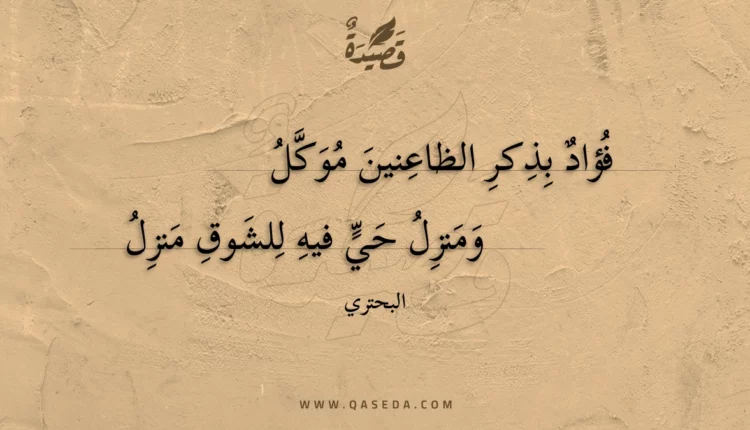 قَصِيدَةٌ
فُؤادٌ بِذِكرِ الظاعِنينَ مُوَكَّلُ
وَمَنزِلُ حَيٍّ فيهِ لِلشَوقِ مَنزِلُ
البحتري
WWW.QASEDA.COM